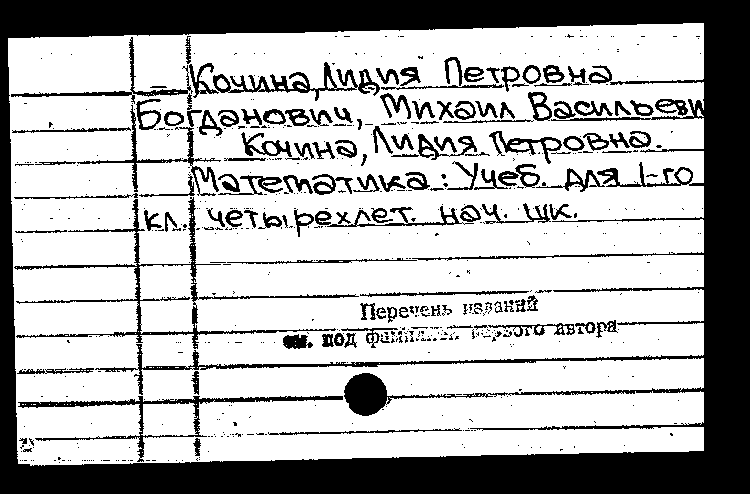 Кочина, Лидия Петровна
Богданович, Михаил Васильеви
Кочина, Лидия Петровна.
Математика: Учеб. для 1-го
кл. четырехлет. нач. шк.
Перечень изданий
см. под фамилией первого автора